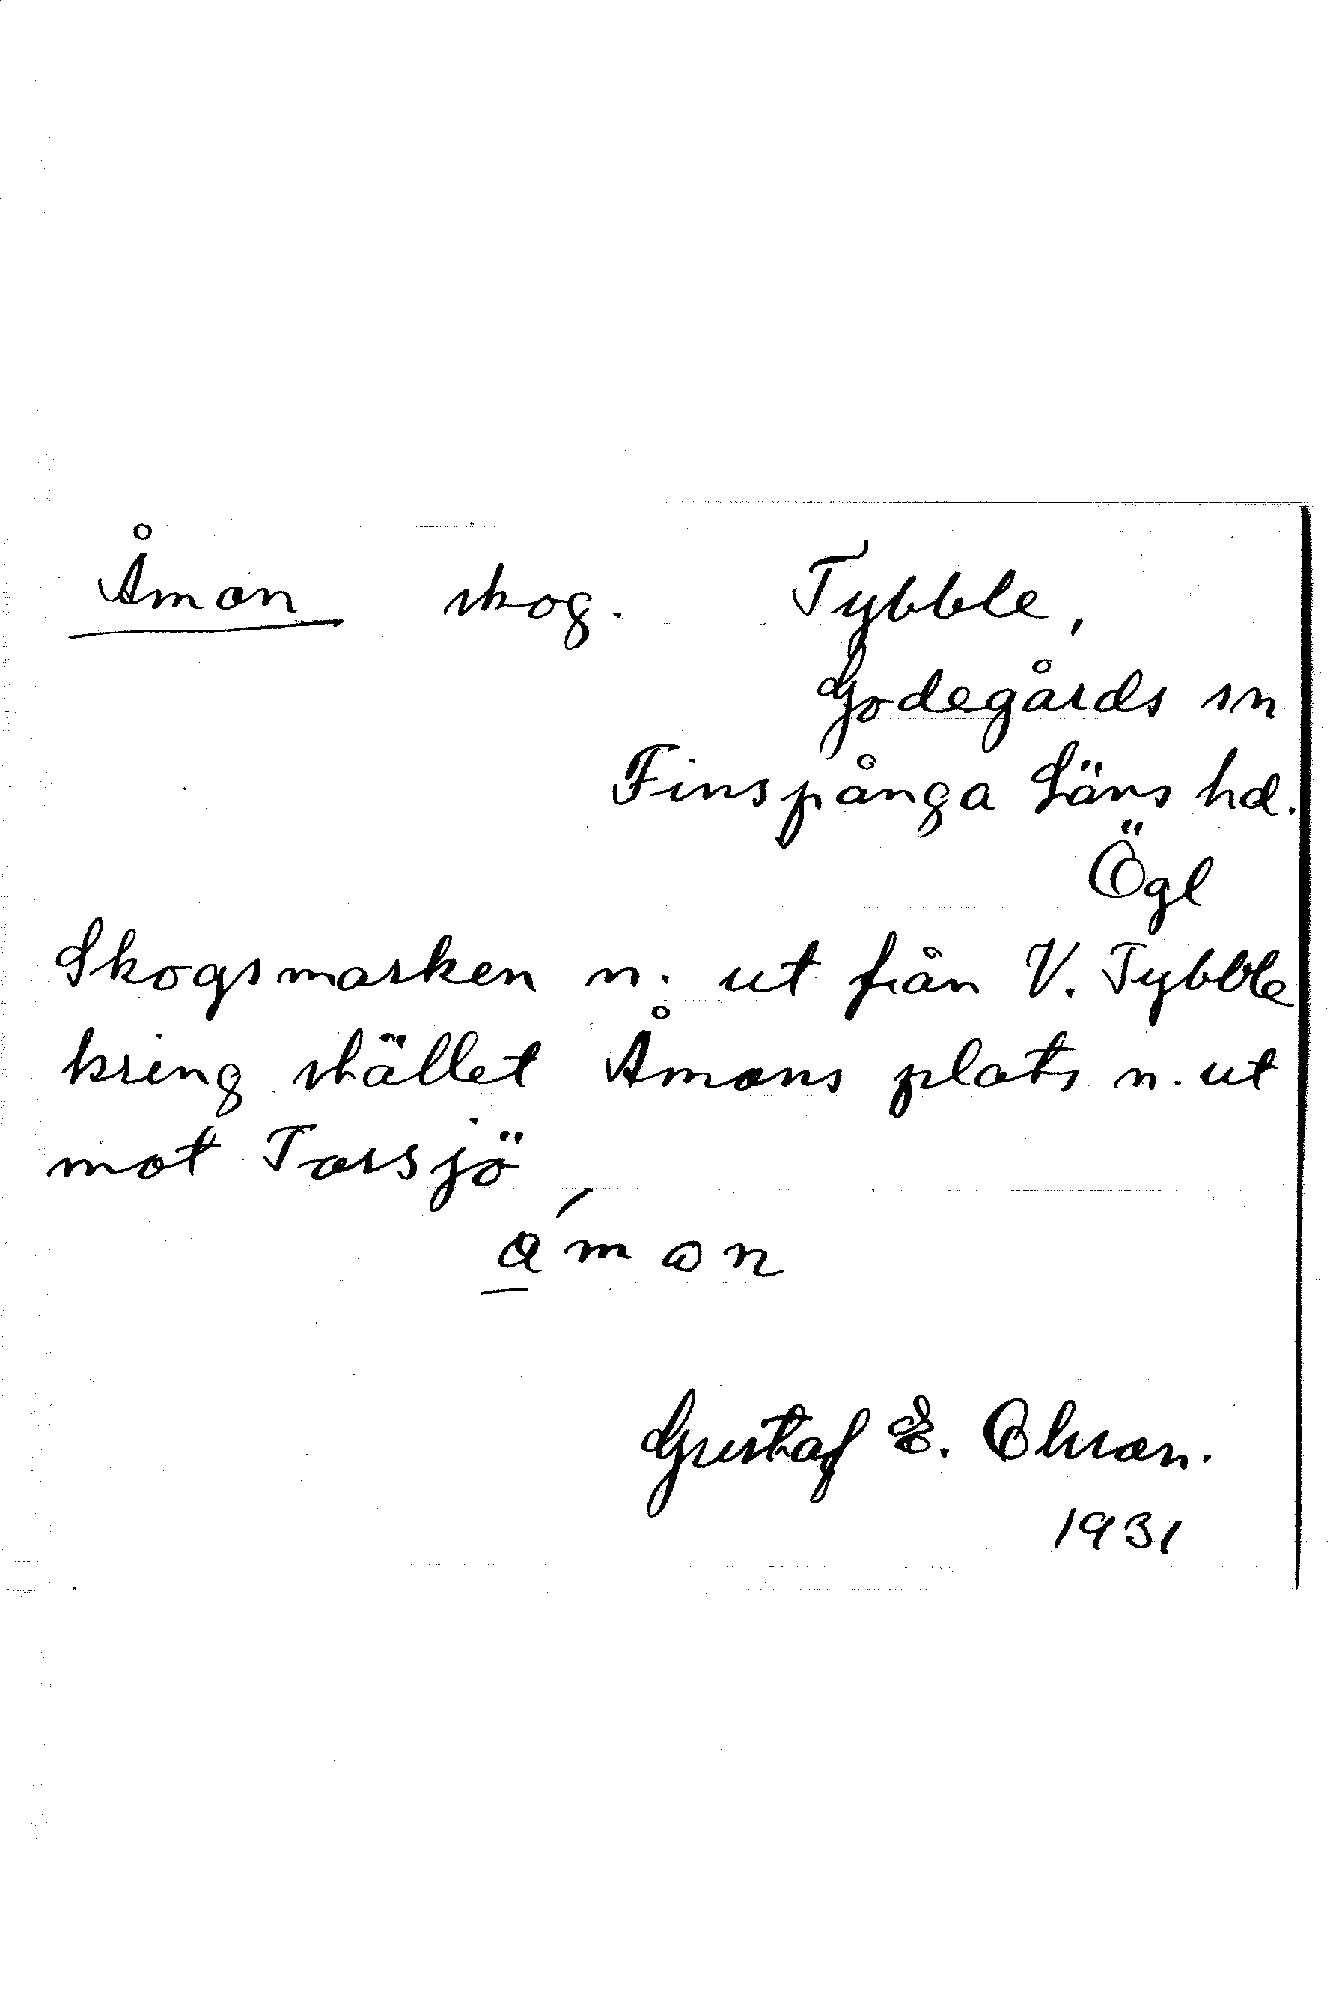 Åmon skog. Tybble,
Godegårds sn
Finspånga Läns hd.
Ögl
Skogsmarken n. ut från V. Tybble
kring stället Åmons plats n. ut
mot Torsjö
a̲ ́mon
Gustaf E. Olsson.
1931